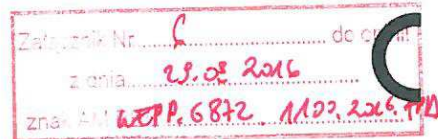 Załącznik Nr 6 do opinii
z dnia 29.08 2016
znak AM WEPP. 6872. 1102. 2016.